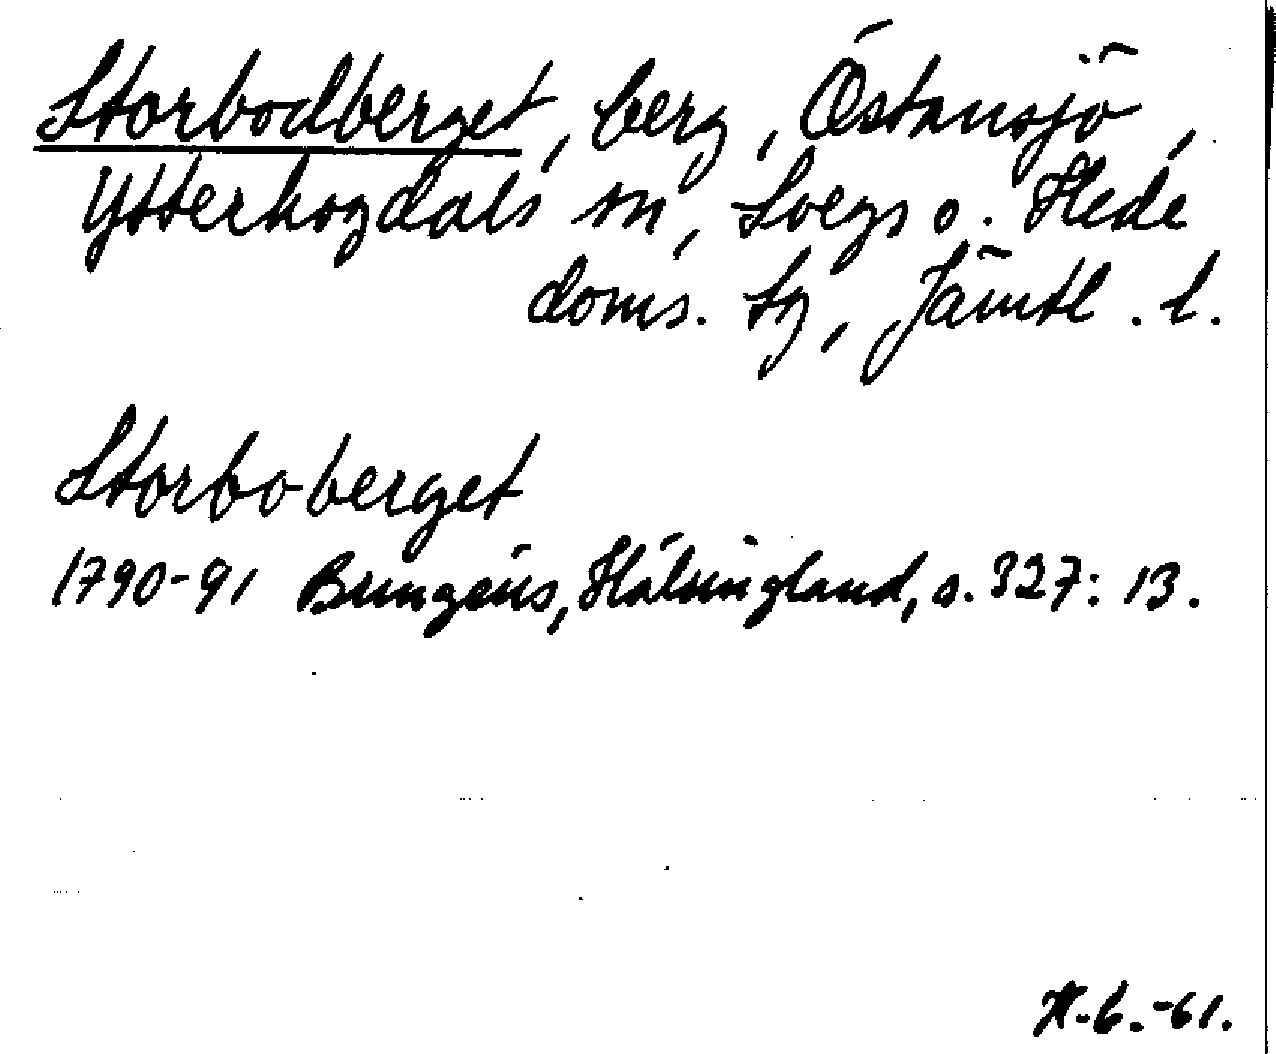 Storbodberget, berg, Östansjö,
Ytterhogdals sn, Svegs o. Hede
doms. sg, Jämtl. l.
Storboberget
1790-91 Bungéus, Hälsingland, s. 327: 13.
H. B. -61.